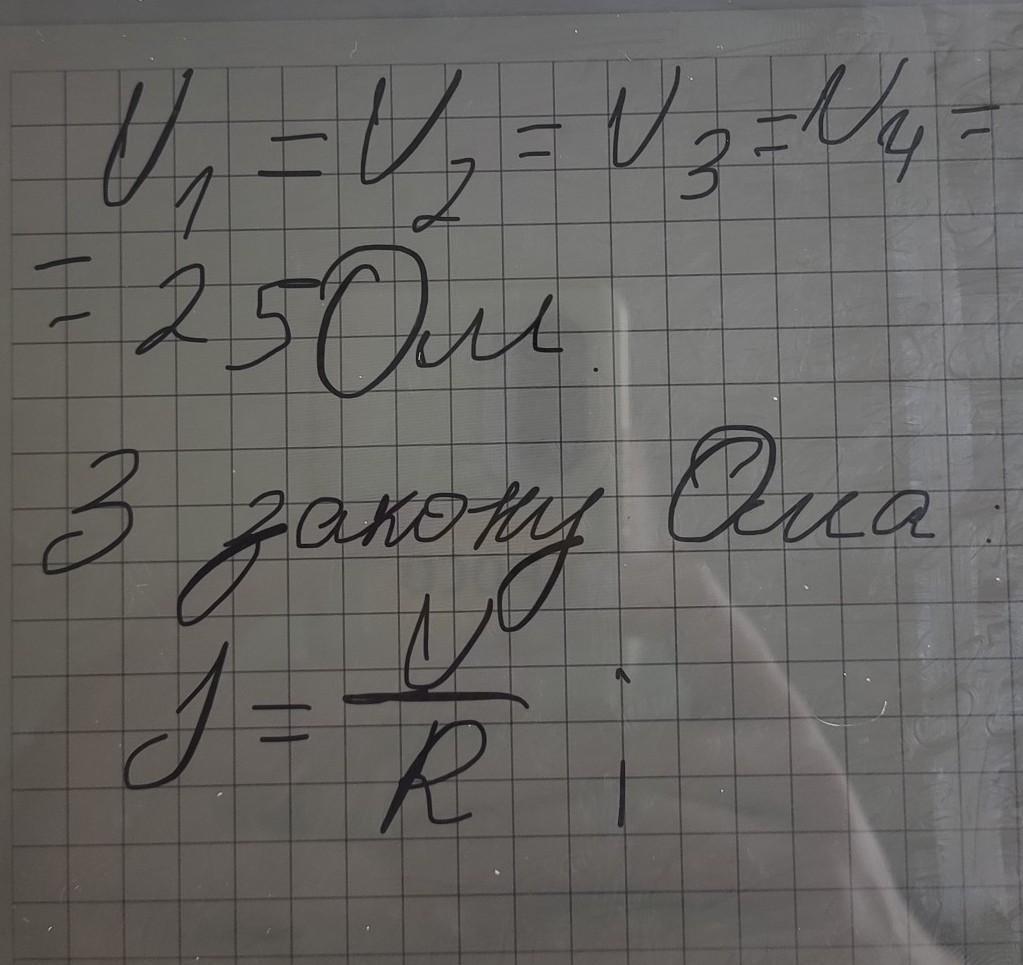 U₁ = U₂ = U₃ = U₄ =
= 25 Ом.
З закону Ома:
I = U/R ;